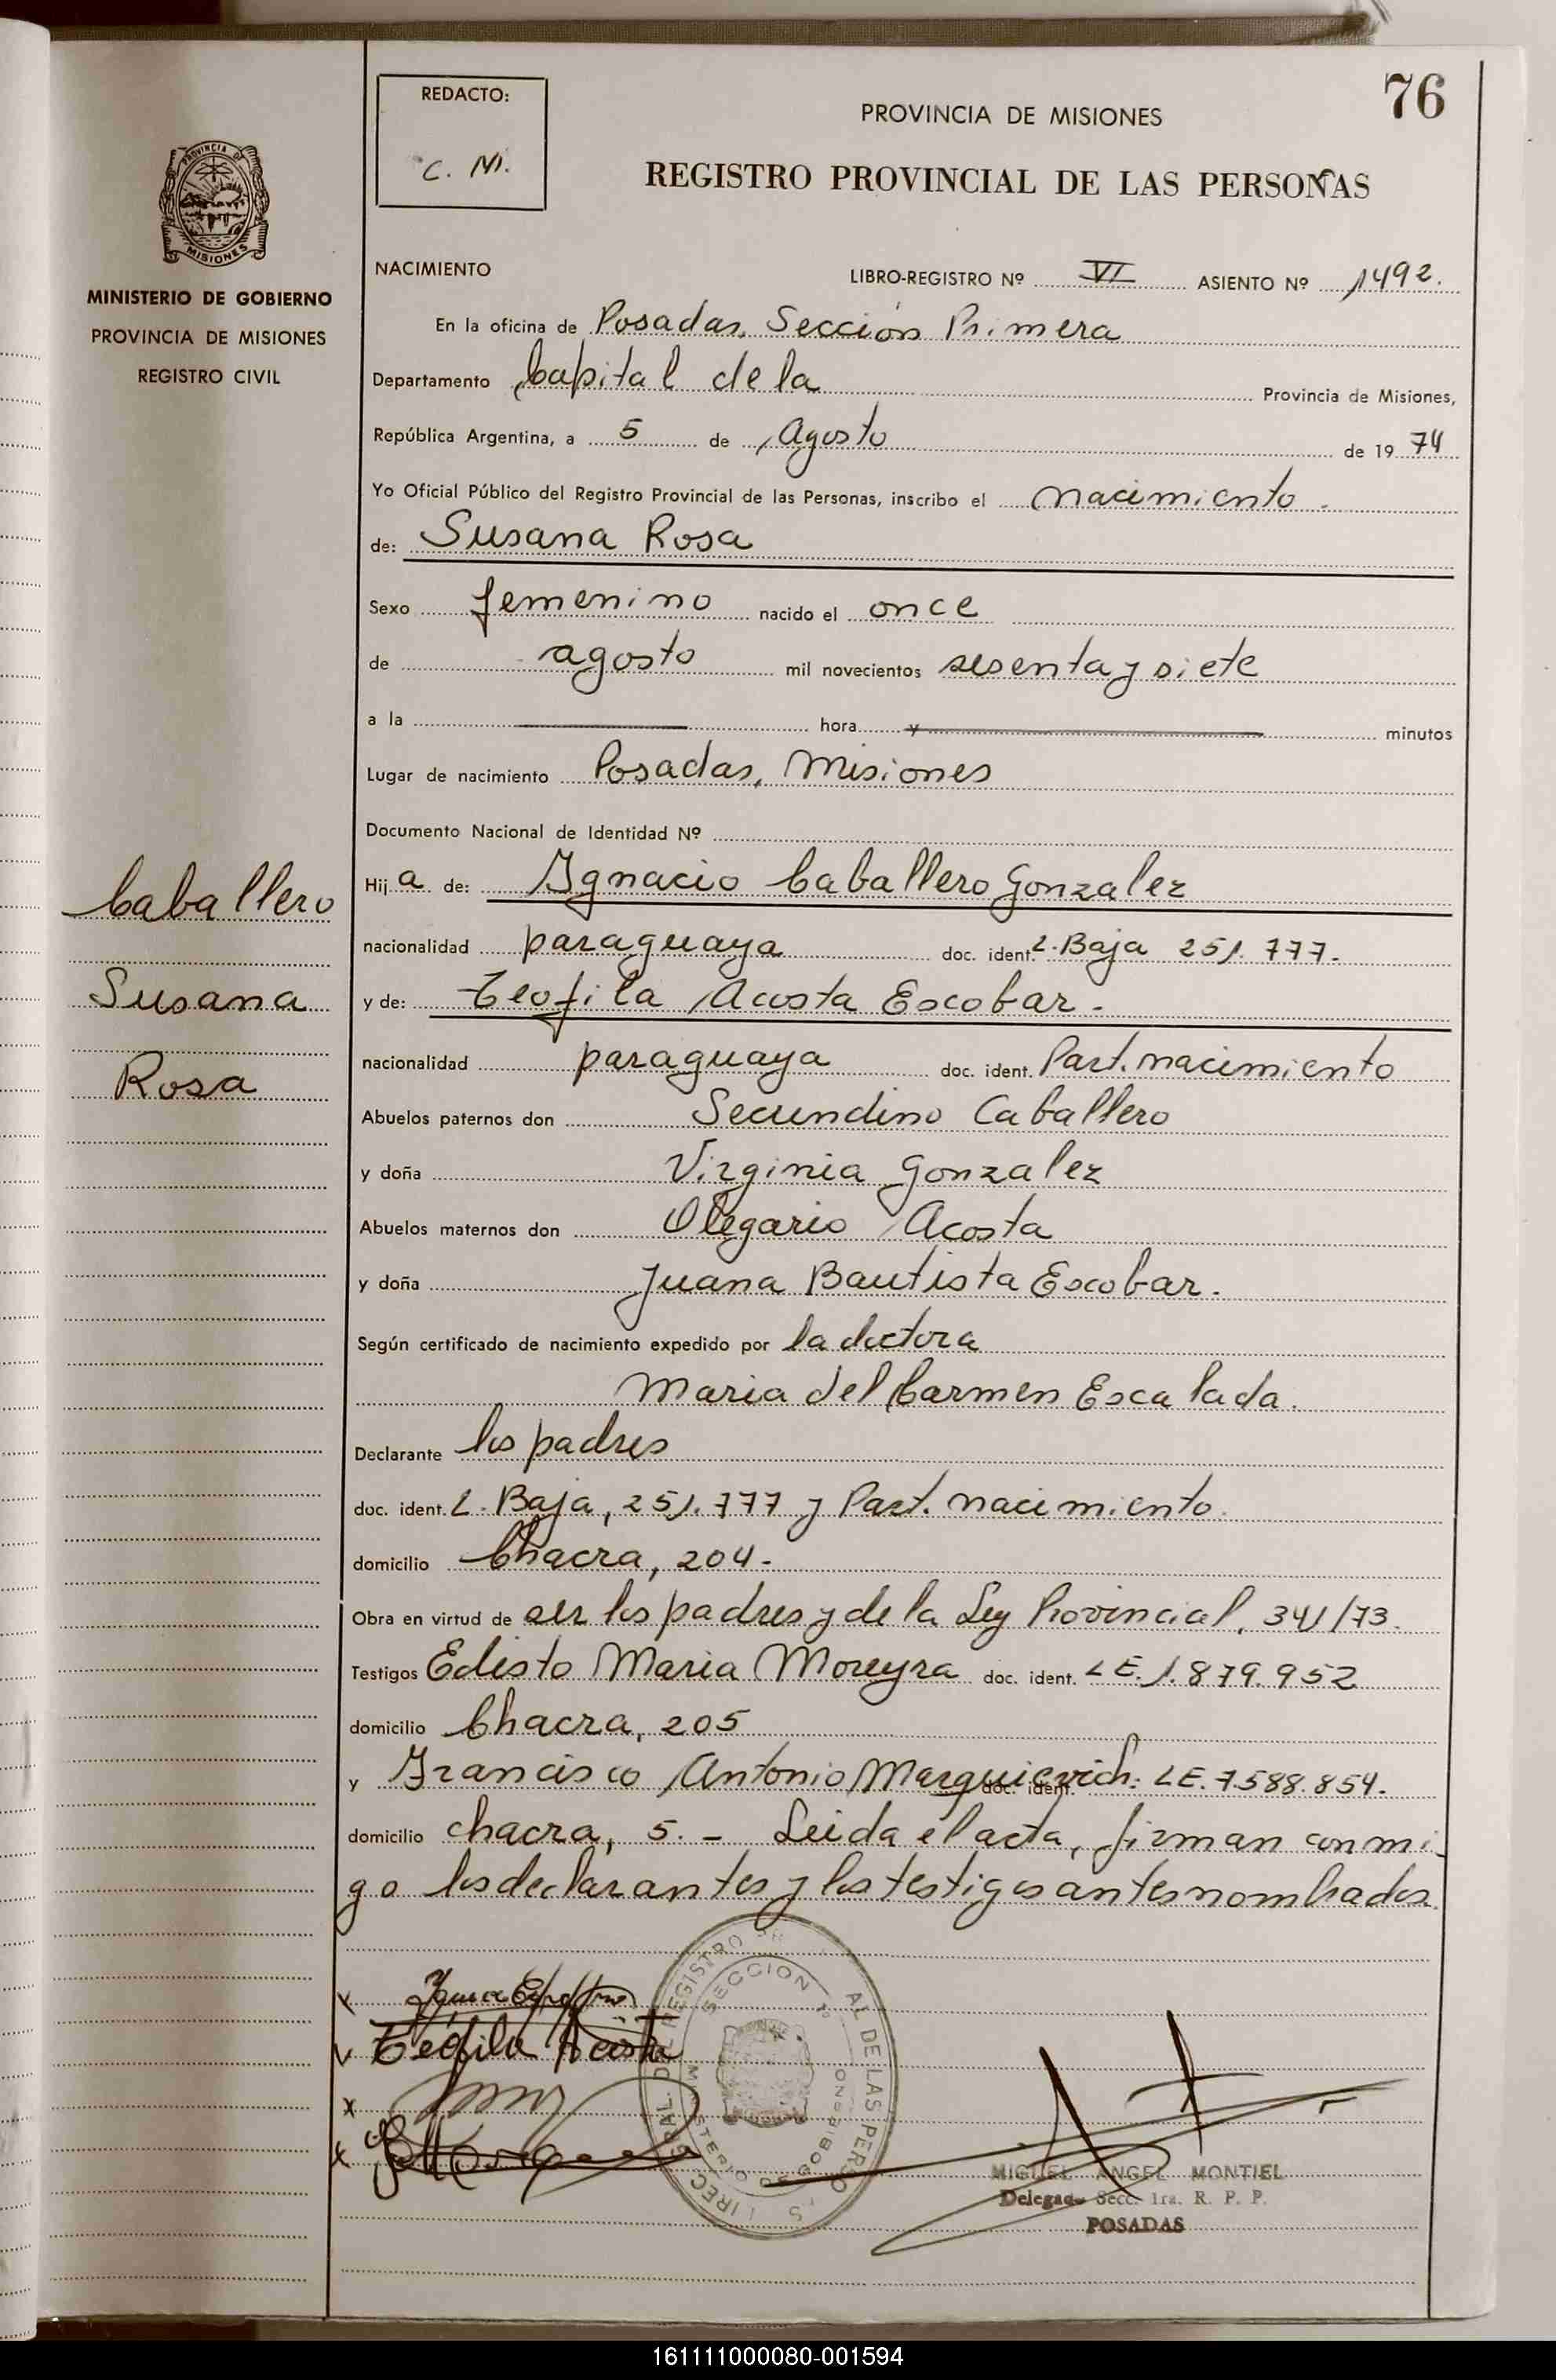 76
REDACTO:
C. M.
PROVINCIA DE MISIONES
REGISTRO PROVINCIAL DE LAS PERSONAS
PROVINCIA DE
MISIONES
MINISTERIO DE GOBIERNO
PROVINCIA DE MISIONES
REGISTRO CIVIL
NACIMIENTO LIBRO-REGISTRO Nº VI ASIENTO Nº 1492.
En la oficina de Posadas, Sección Primera
Departamento Capital de la Provincia de Misiones,
República Argentina, a 5 de Agosto de 1974
Yo Oficial Público del Registro Provincial de las Personas, inscribo el nacimiento.
de: Susana Rosa
Sexo femenino nacido el once
de agosto mil novecientos sesenta y siete
a la hora y minutos
Lugar de nacimiento Posadas, Misiones
Documento Nacional de Identidad Nº
Caballero
Susana
Rosa
Hija de: Ignacio Caballero Gonzalez
nacionalidad paraguaya doc. ident. L. Baja 251.777.
y de: Teofila Acosta Escobar.
nacionalidad paraguaya doc. ident. Part. nacimiento
Abuelos paternos don Secundino Caballero
y doña Virginia Gonzalez
Abuelos maternos don Olegario Acosta
y doña Juana Bautista Escobar.
Según certificado de nacimiento expedido por la doctora
Maria del Carmen Escalada.
Declarante los padres
doc. ident. L. Baja, 251.777 y Part. nacimiento.
domicilio Chacra, 204.
Obra en virtud de ser los padres y de la Ley Provincial, 341/73.
Testigos Edisto Maria Moreyra doc. ident. LE. 1.879.952
domicilio Chacra, 205
y Francisco Antonio Marquievich: doc. ident. LE. 7.588.854.
domicilio chacra, 5. - Leida el acta, firman conmi-
go los declarantes y los testigos antes nombrados.
Teofila Acosta
SECCION 1º
MIGUEL ANGEL MONTIEL
Delegado Secc. 1ra. R. P. P.
POSADAS
161111000080-001594